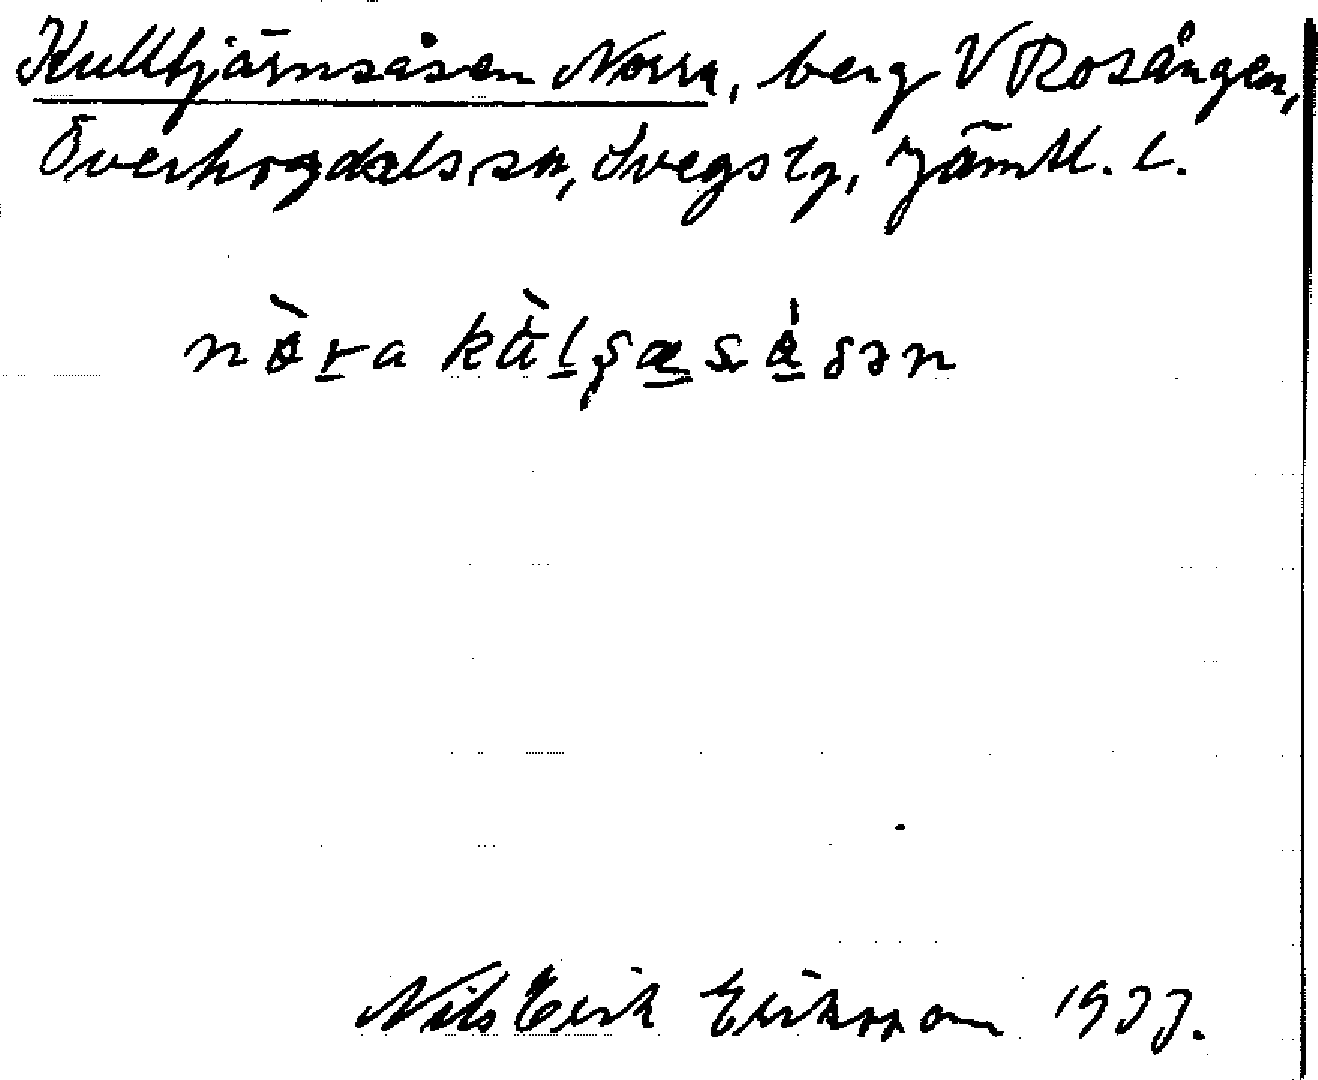 Kulltjärnsåsen Norra, berg V Rosången,
Överhogdals sn, Svegs tg, Jämtl. l.
Nils Erik Eriksson 1933.